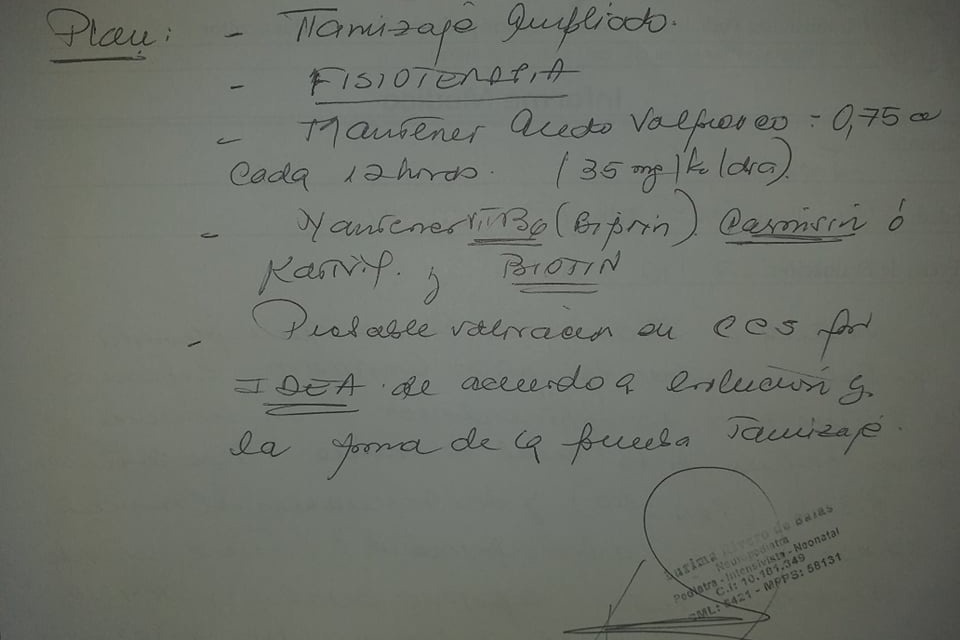 Plan: - Tamizaje Ampliado.
- FISIOTERAPIA
- Mantener Acido Valproico = 0,75 cc
cada 12 horas. (35 mg/k/dia).
- Mantener VIT B6 (Biprin) Carnisin ó
y BIOTIN
- Probable valoracion en CCS por
IDEA de acuerdo a evolución y
la toma de la prueba Tamizaje.
Alvaro de Salas
Neuropediatra
Pediatra - Intensivista - Neonatal
C.I: 10.101.349
CML: 5421 - MPPS: 58131